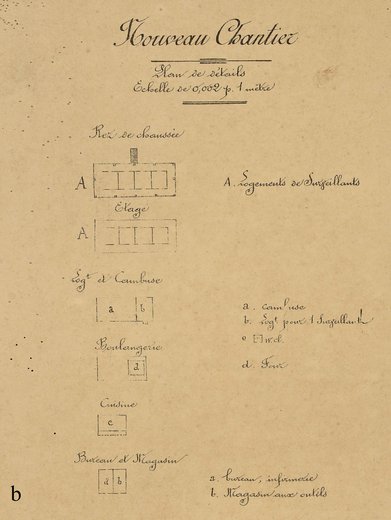 Nouveau Chantier
Plan de détails
Echelle de 0,002 p. 1 mètre
Rez de chaussée
A
A. Logements de Surveillants
Etage
A
Logt et Cambuse
a b
a. cambuse
b. Logt pour 1 Surveillant
c
Boulangerie
d
d. Four
Cuisine
c
Bureau et Magasin
a b
a. bureau, infirmerie
b. Magasin aux outils
b